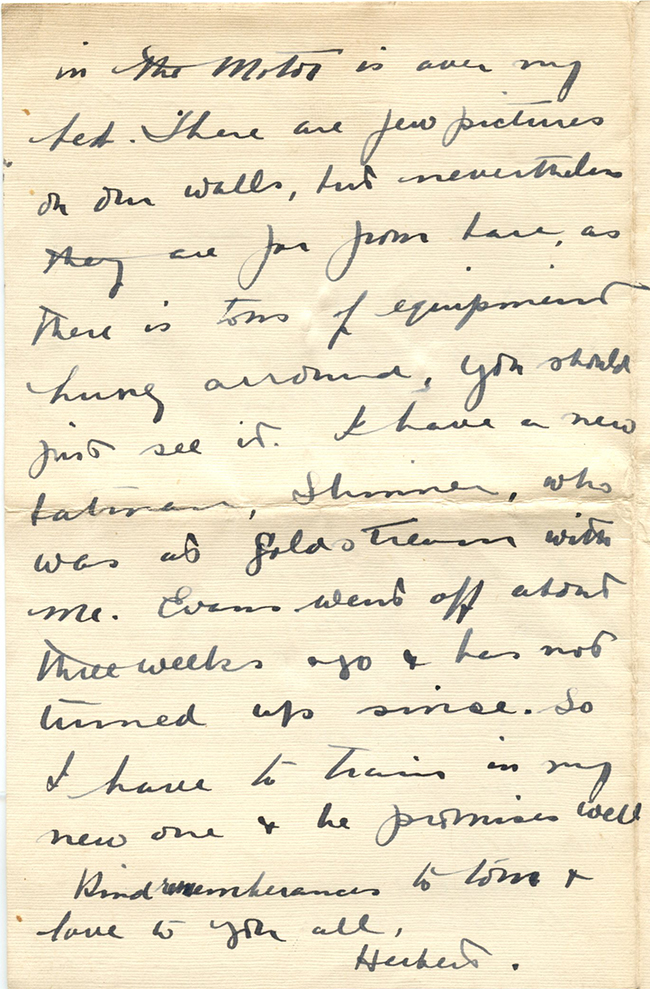 in the Motor is over my
bed. There are few pictures
on our walls, but nevertheless
they are far from bare, as
there is tons of equipment
hung arround, you should
just see it. I have a new
batman, Skinner, who
was at Goldstream with
me. Evans went off about
three weeks ago & has not
turned up since. So
I have to train in my
new one & he promises well
Kind rememberances to tom &
love to you all,
Herbert.